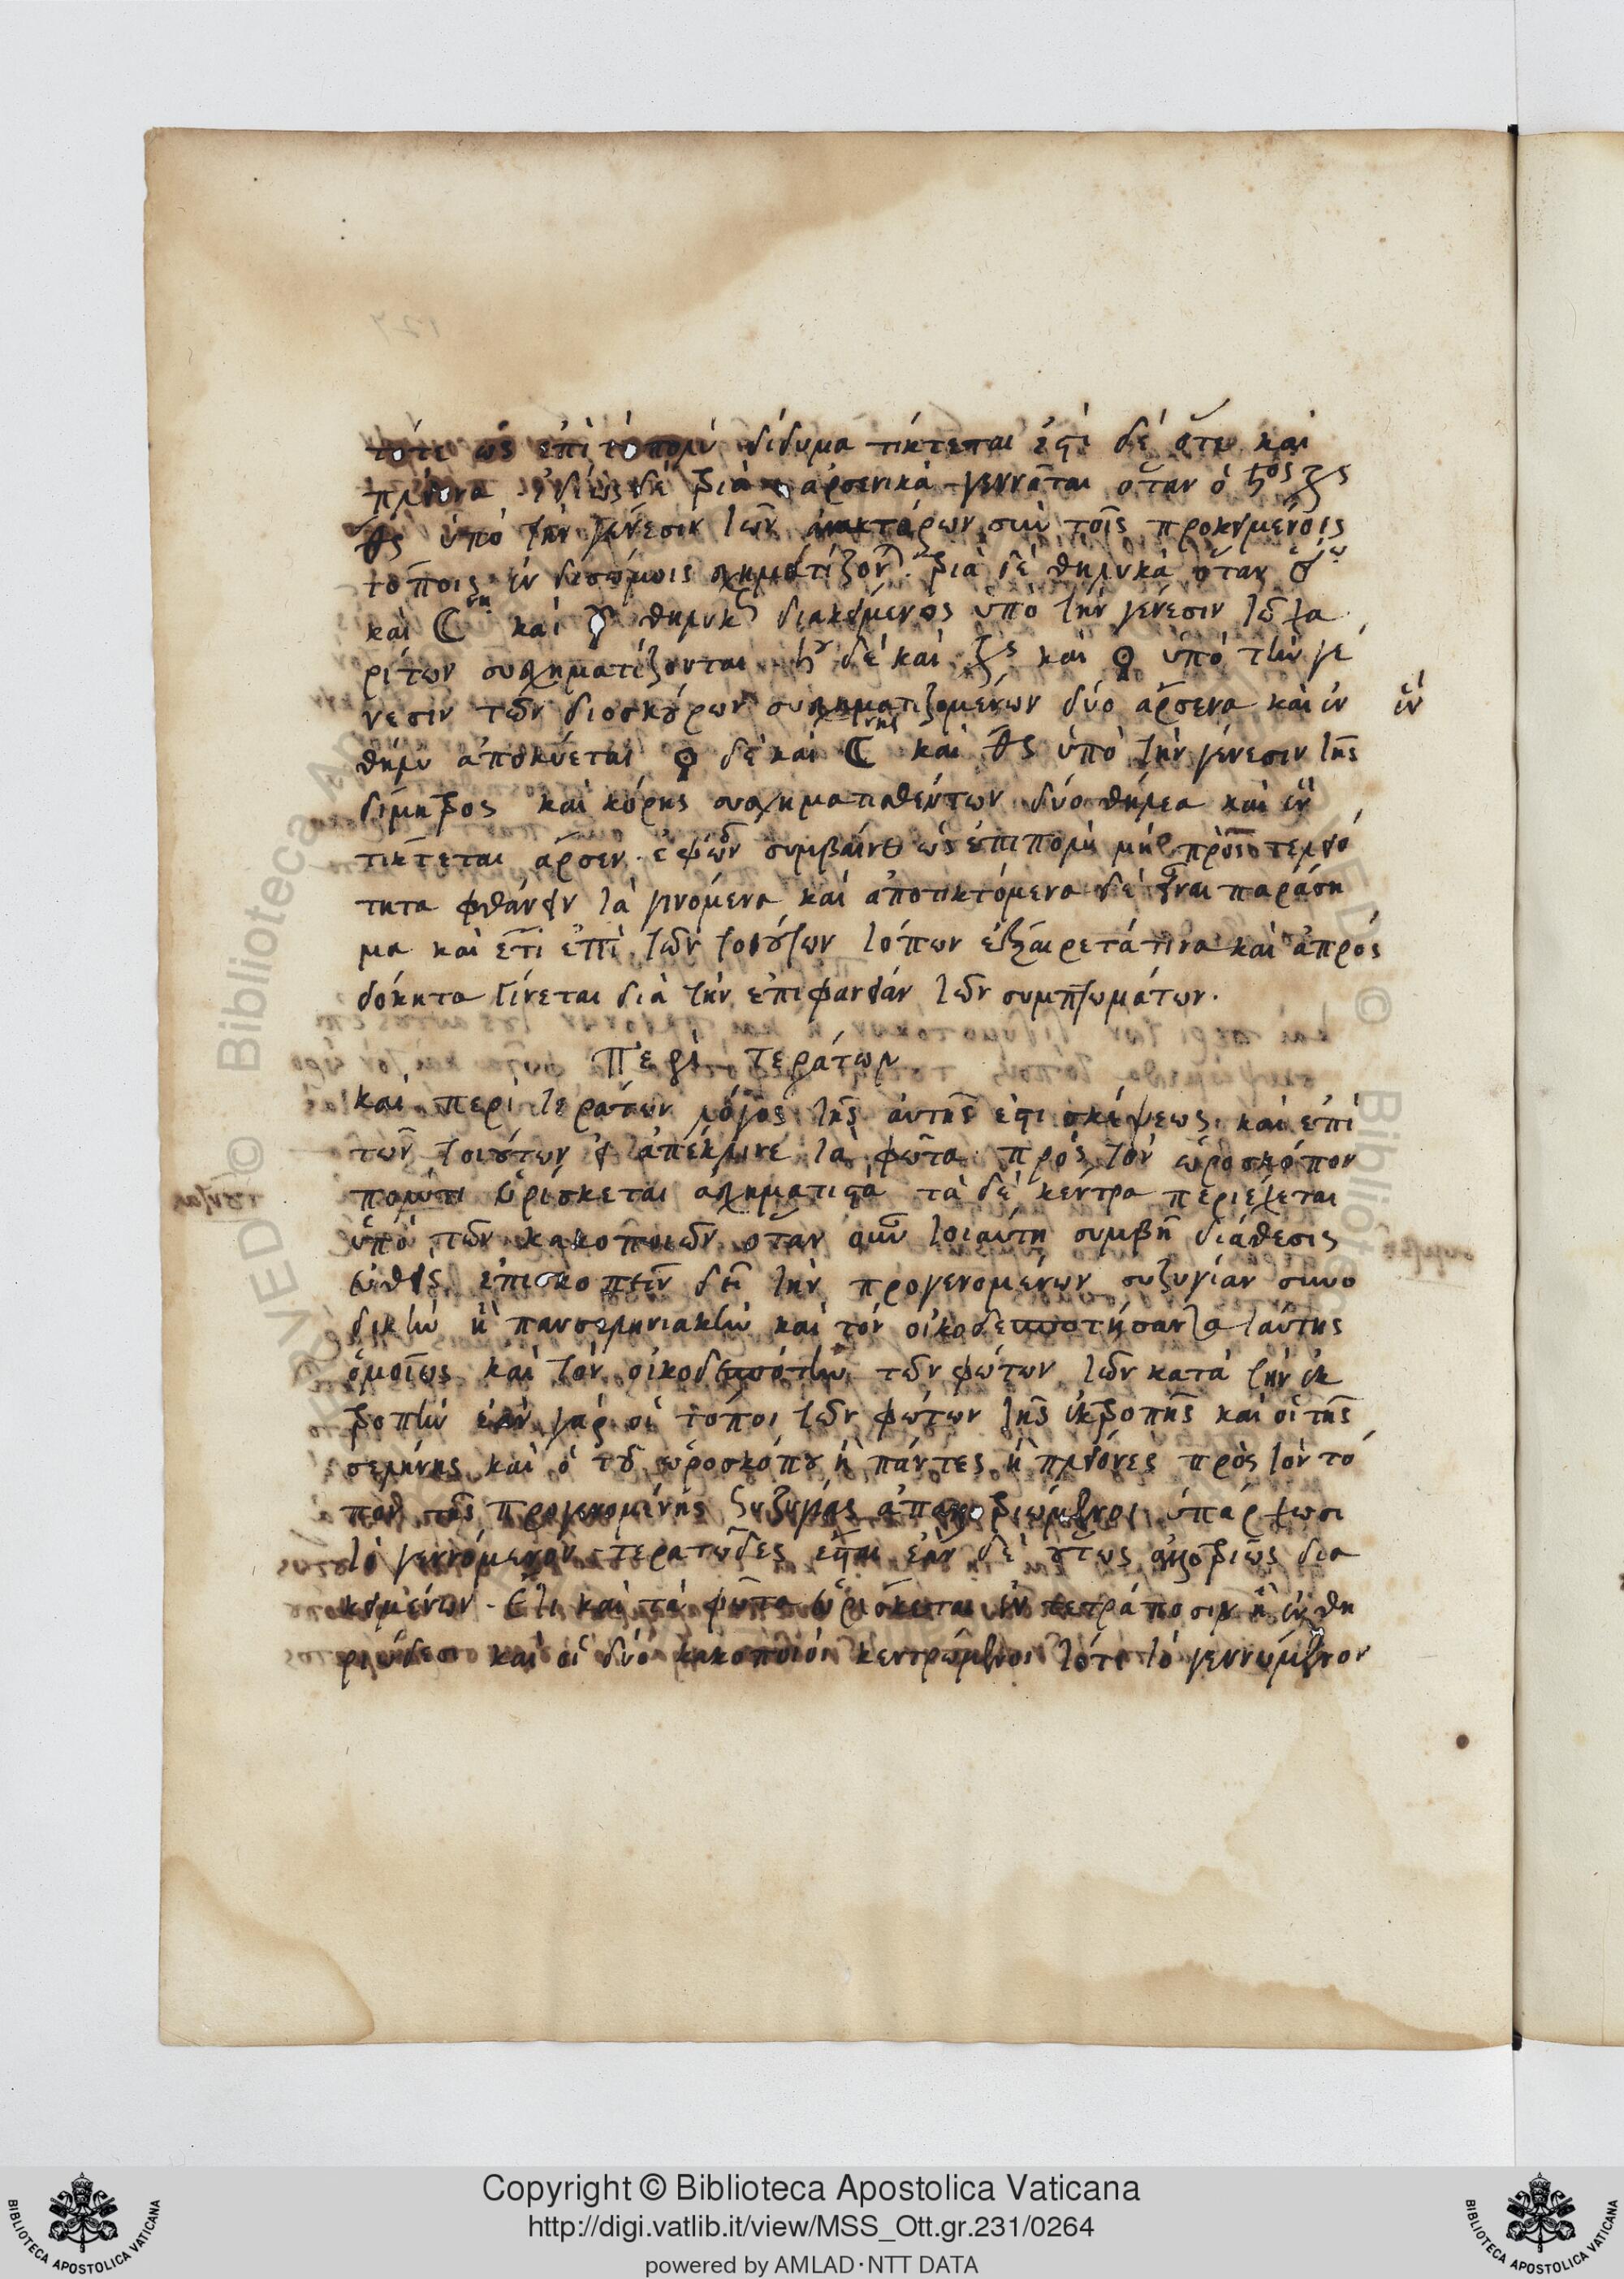 τότε ὡς ἐπὶ τὸ πολὺ δίδυμα τίκτεται ἐστὶ δὲ ὅτε καὶ
πλείονα ἰδίως δὲ τρία ἀρσενικὰ γεννᾶται ὅταν ὁ ♄ος ♃ς
♂ς ὑπὸ τὴν γένεσιν τῶν ἀνακτόρων σὺν τοῖς προκειμένοις
τόποις ἐν δισώμοις σχηματίζον τρία δὲ θηλυκὰ ὅταν
καὶ ☾νη καὶ ☿ θηλυκ διακείμενος ὑπὸ τὴν γένεσιν τῶ χα
ρίτων συσχηματίζονται ♄ου δὲ καὶ ♃ς καὶ ♀ ὑπὸ τὴν γέ
νεσιν τῶν διοσκούρων συσχηματιζομένων δύο ἄρσενα καὶ ἐν
ἓν
θῆλυ ἀποκύεται ♀ δὲ καὶ ☾νης καὶ ♂ς ὑπὸ τὴν γένεσιν τῆς
δίμητρος καὶ κόρης συσχηματισθέντων δύο θήλεα καὶ ἓν
τίκτεται ἄρσεν. ἐφ' ὧν συμβαίνει ὡς ἐπιπολὺ μὴ πρὸς τελειό
τητα φθάνειν τὰ γινόμενα καὶ ἀποτικτόμενα δὲ εἶναι παράση
μα καὶ ἔτι ἐπὶ τῶν τοιούτων τόπων ἐξαίρετά τινα καὶ ἀπρος
δόκητα γίνεται διὰ τὴν ἐπιφανείαν τῶν συμπτωμάτων.
Περὶ τεράτων
καὶ περὶ τεράτων λόγος τῆς αὐτῆς ἐστι σκέψεως καὶ ἐπὶ
τῶν τοιούτων ἢ ἀπέκλινε τὰ φῶτα πρὸς τὸν ὡροσκόπον
εὑρίσκεται σχηματιστα τὰ δὲ κέντρα περιέχεται
ὑπὸ τῶν κακοποιῶν ὅταν οὖν τοιαύτη συμβῆ διάθεσις
εὐθὺς ἐπισκοπεῖν δεῖ τὴν προγενομένων συζυγίαν συνο
δικὴν ἢ πανσεληνιακὴν καὶ τὸν οἰκοδεσποτήσαντα ταύτης
ὁμοίως καὶ τὸν οἰκοδεσπότην τῶν φώτων τῶν κατὰ τὴν ἐκ
τροπὴν ἐὰν γὰρ οἱ τόποι τῶν φώτων τῆς ἐκτροπῆς καὶ οἱ τῆς
σελήνης καὶ ὁ τοῦ ὡροσκόπου ἢ πάντες ἢ πλείονες πρὸς τὸν τό
πον τῆς προγενομένης συζυγίας ὑπάρχωσι
τὸ γεννόμενον τερατῶδες ἔσται ἐὰν δὲ οὕτως δια
κειμένων. ἔτι καὶ τὰ φῶτα εὑρίσκεται ἐν τετράποσιν ἢ ἐν θη
ριώδεσι καὶ οἱ δύο κακοποιοὶ κεντρώμενοι τότε τὸ γεννώμενον
Copyright © Biblioteca Apostolica Vaticana
http://digi.vatlib.it/view/MSS_Ott.gr.231/0264
powered by AMLAD·NTT DATA
BIBLIOTECA APOSTOLICA VATICANA
BIBLIOTECA APOSTOLICA VATICANA